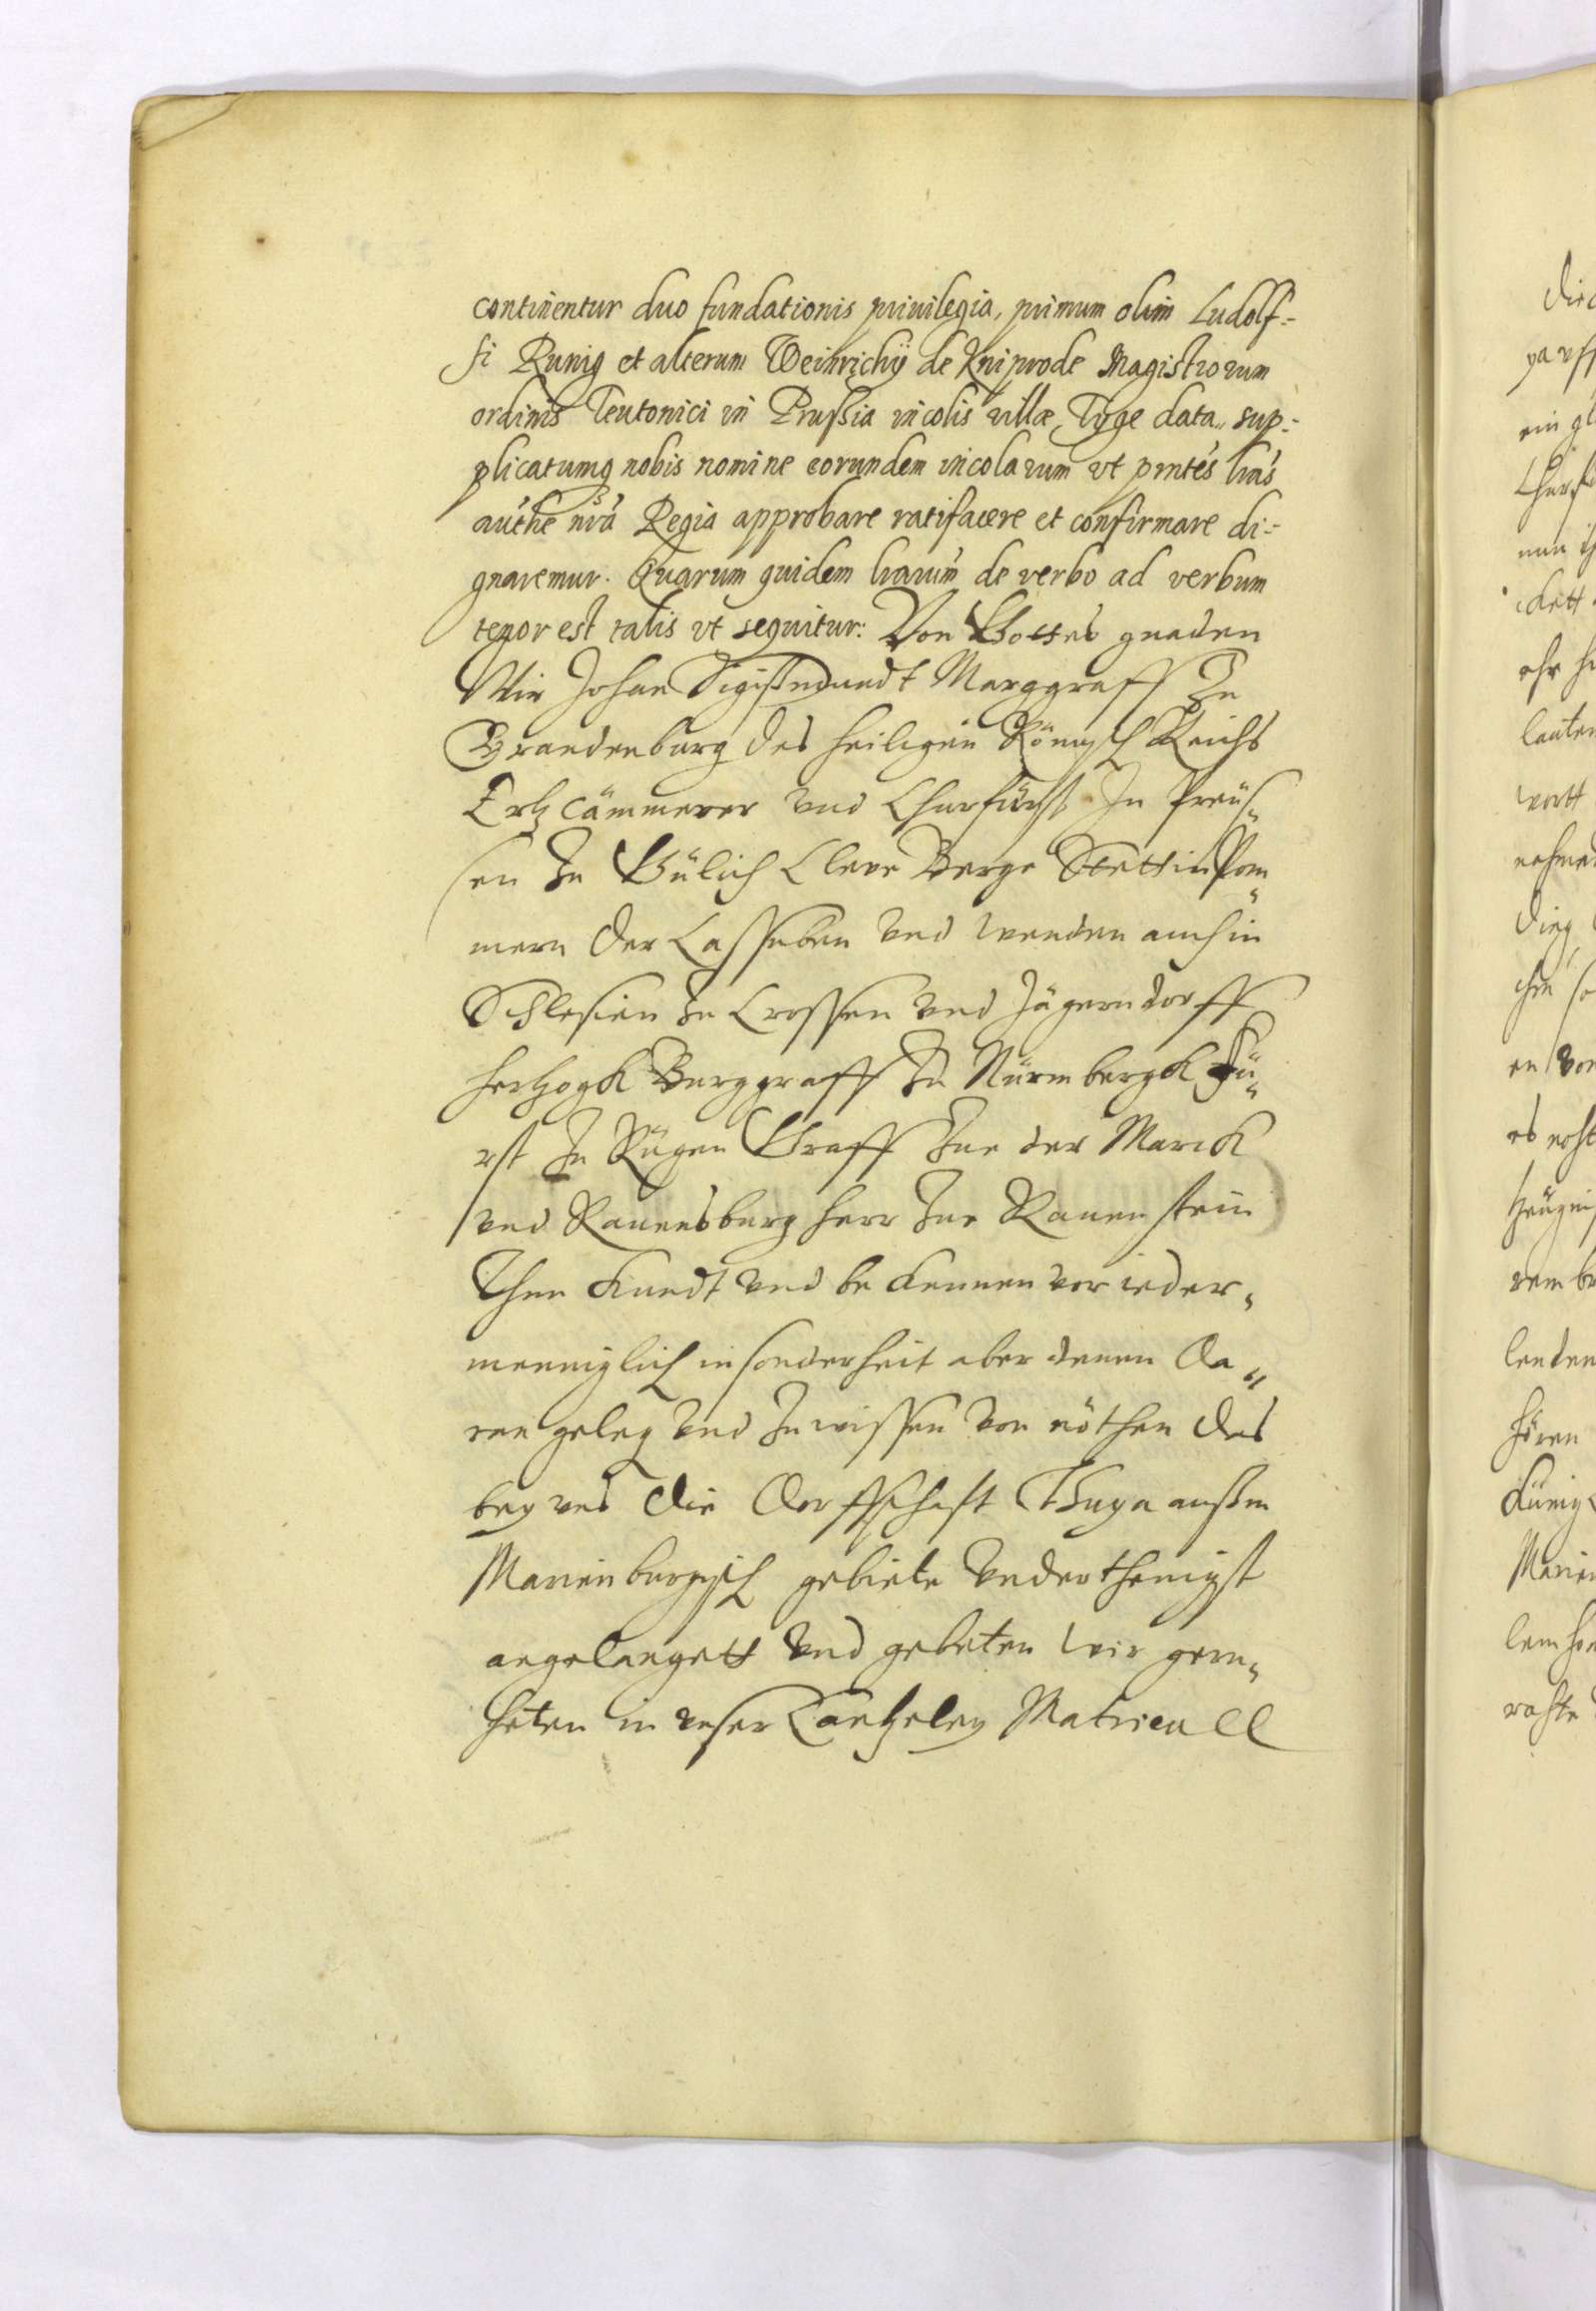 continentur duo fundationis priuilegia, primum olim Ludolf-
fi Runig et alterum Weinrichij de Kniprode Magistrorum
ordinis Teutonici in Prussia incolis villæ Tyge data, sup-
plicatumq nobis nomine eorundem incolarum vt pntes lras
authe nra Regia approbare ratifacere et confirmare di-
gnaremur. Quarum quidem lrarum de verbo ad verbum
tenor est talis vt sequitur: Von Gottes gnaden
Wir Johan Sigißmundt Marggraff Zu
Brandenburg des heiligen Römisch Reichs
Ertz Cämmerer und Churfürst In Preüs
sen Zu Gülich Cleve Berge Stettin Pom
mern der Cassuben und wenden auch in
Schlesien Zu Crossen und Jägerndorff
hertzogk Burggraff Zu Nürmbergk Fü
rst Zu Rügen Graff Zue der Marck
und Rauensburg herr Zue Rauenstein
Thun kundt und bekennen vor ieder
menniglich insonderheit aber denen da
ran geleg und Zuwissen von nöthen das
bey uns die dorffschafft Thyga außm
Marienburgisch gebiete underthenigst
angelangett und gebeten wir geru
heten in unser Cantzeley Matricull
die
ein
Lauten
wortt
ding
en von
lenden
hören